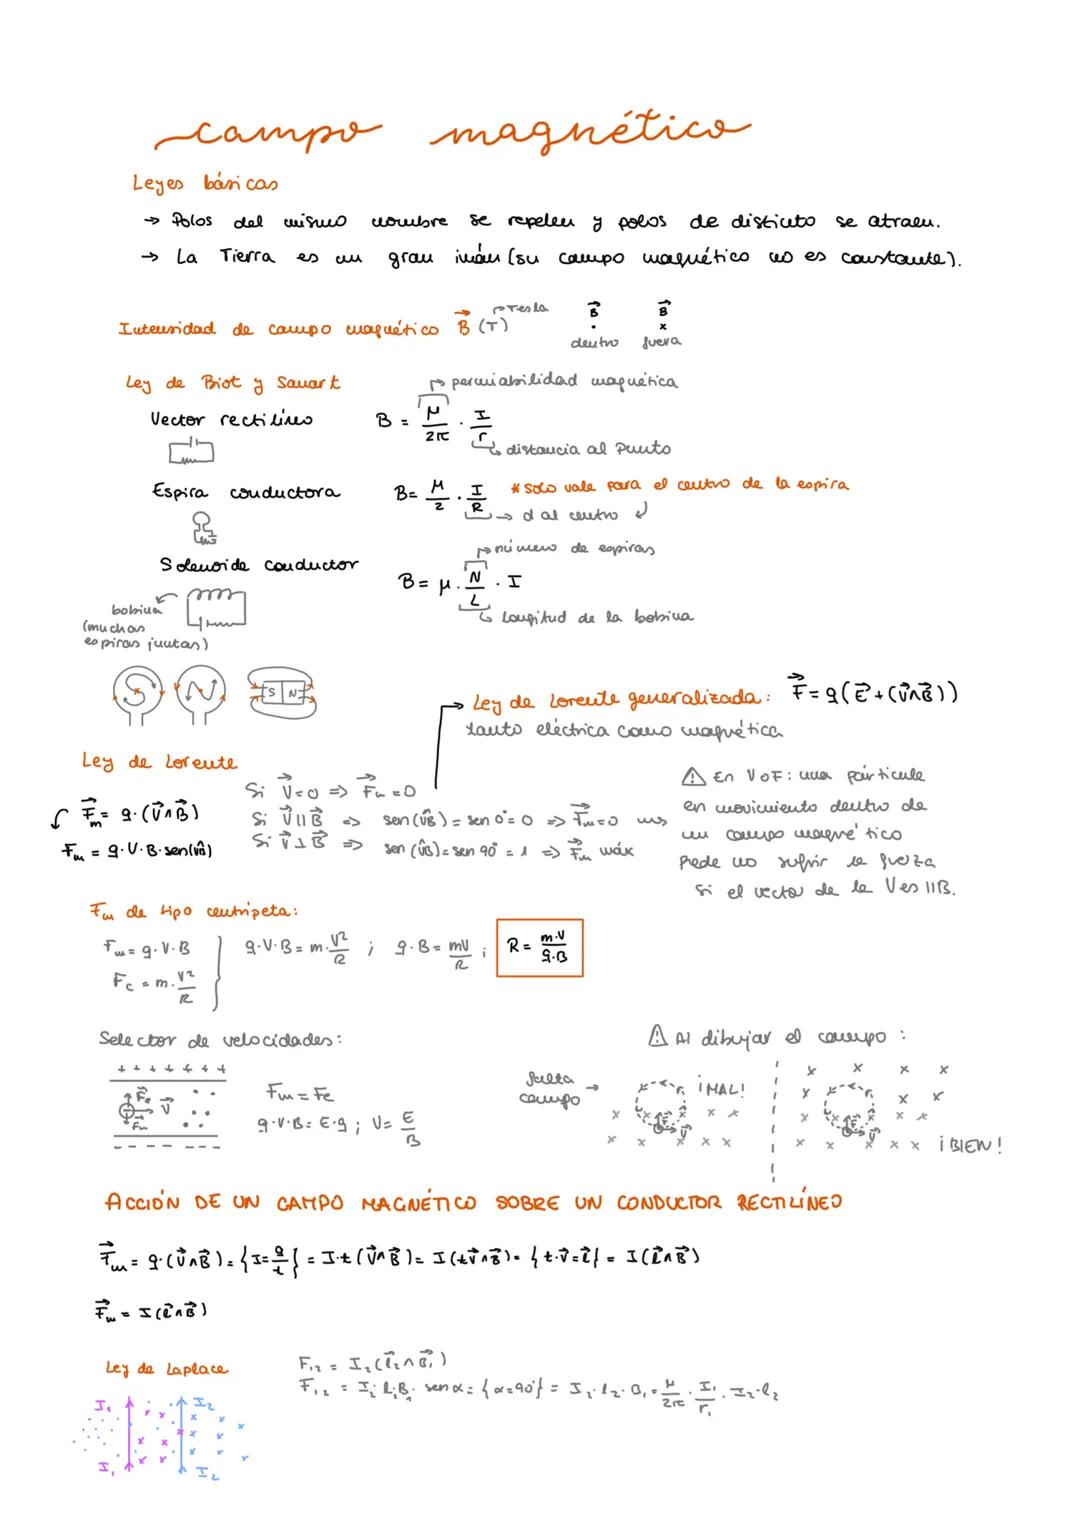 campo magnético
Leyes básicas
→ Polos del mismo nombre se repelen y polos de distinto se atraen.
→ La Tierra es un gran imán (su campo magnético no es constante).
Intensidad de campo magnético B⃗ (T) → Tesla
B⃗ · dentro
B⃗ x fuera
Ley de Biot y Savart
→ permiabilidad magnética
Vector rectilíneo B = μ/2π · I/r
→ distancia al punto
Espira conductora B = μ/2 · I/R * solo vale para el centro de la espira
→ d al centro
→ número de espiras
Solenoide conductor B = μ · N/L · I
→ longitud de la bobina
bobina
(muchas
espiras juntas)
S N S N
→ Ley de Lorente generalizada: F⃗ = q(E⃗ + (v⃗∧B⃗))
tanto eléctrica como magnética
Ley de Lorente
F⃗m = q·(v⃗∧B⃗)
Fm = q·v·B·sen(vB)
Si v⃗=0 ⇒ F⃗m=0
Si v⃗ || B⃗ ⇒ sen(vB) = sen 0° = 0 ⇒ F⃗m=0
Si v⃗ ⊥ B⃗ ⇒ sen(vB) = sen 90° = 1 ⇒ F⃗m máx
⚠ En V o F: una partícula
en movimiento dentro de
un campo magnético
puede no sufrir la fuerza
si el vector de la V es || B.
Fm de tipo centrípeta:
Fm = q·v·B
Fc = m·v²/R
q·v·B = m·v²/R ; q·B = mv/R ; R = m·v/q·B
Selector de velocidades:
+ + + + + + +
F⃗e v⃗
F⃗m
- - - - - - -
Fm = Fe
q·v·B = E·q ; v = E/B
⚠ Al dibujar el campo :
falta
campo → ¡MAL!
F⃗ v⃗
F⃗ v⃗
¡BIEN!
ACCIÓN DE UN CAMPO MAGNÉTICO SOBRE UN CONDUCTOR RECTILÍNEO
F⃗m = q·(v⃗∧B⃗) = {I = q/t} = I·t(v⃗∧B⃗) = I(tv⃗∧B⃗) = {t·v⃗=l⃗} = I(l⃗∧B⃗)
F⃗m = I(l⃗∧B⃗)
Ley de Laplace
F₁₂ = I₂(l⃗₂∧B⃗₁)
F₁₂ = I₂·l₂·B₁·sen α = {α=90°} = I₂·l₂·B₁ = μ/2π · I₁/r₁ · I₂·l₂
I₁ I₂
I₁ I₂